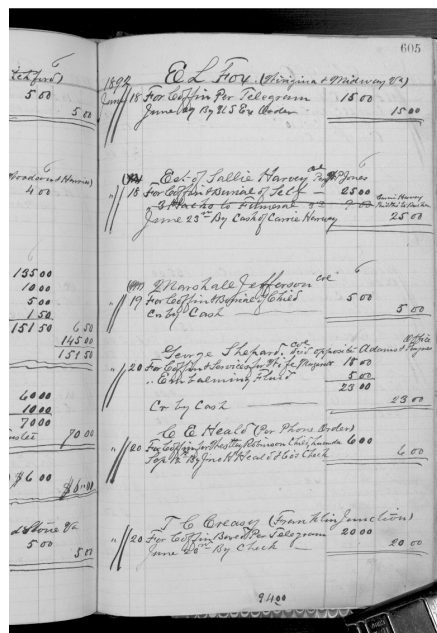 605
6
tchford)
5 00
5 00
Woodson & Harris)
4 00
135 00
10 00
5 00
1 50
151 50 6 50
145 00
151 50
60 00
10 00
70 00
70 00
$6 00
$6 00
d Stone Va
5 00
5 00
1892 E L Fox. (Virginia & Midway Va)
June 18 For Coffin Per Telegram 15 00
June By U.S Ex Order 15 00
6
Est of Sallie Harvey Col Jones
18 For Coffin & Burial of Self 25 00
3 Hacks to Funeral 9 00 Carrie Harvey
June 23rd By Cash of Carrie Harvey 25 00
6
Marshall Jefferson Col
" 19 For Coffin & Burial of Child 5 00
Cr by Cash 5 00
George Shepard. Col opposite Adams & Office
" 20 For Coffin & Services for Wife 18 00
" Embalming Fluid 5 00
23 00
Cr by Cash 23 00
C E Heald (Per Phone Order)
" 20 For Coffin for Robinson Child 6 00
Sep 12th By Jno H Heald & Co's Check 6 00
T C Creasy (Franklin Junction)
" 20 For Coffin Box & Per Telegram 20 00
June 26th By Check 20 00
94 00